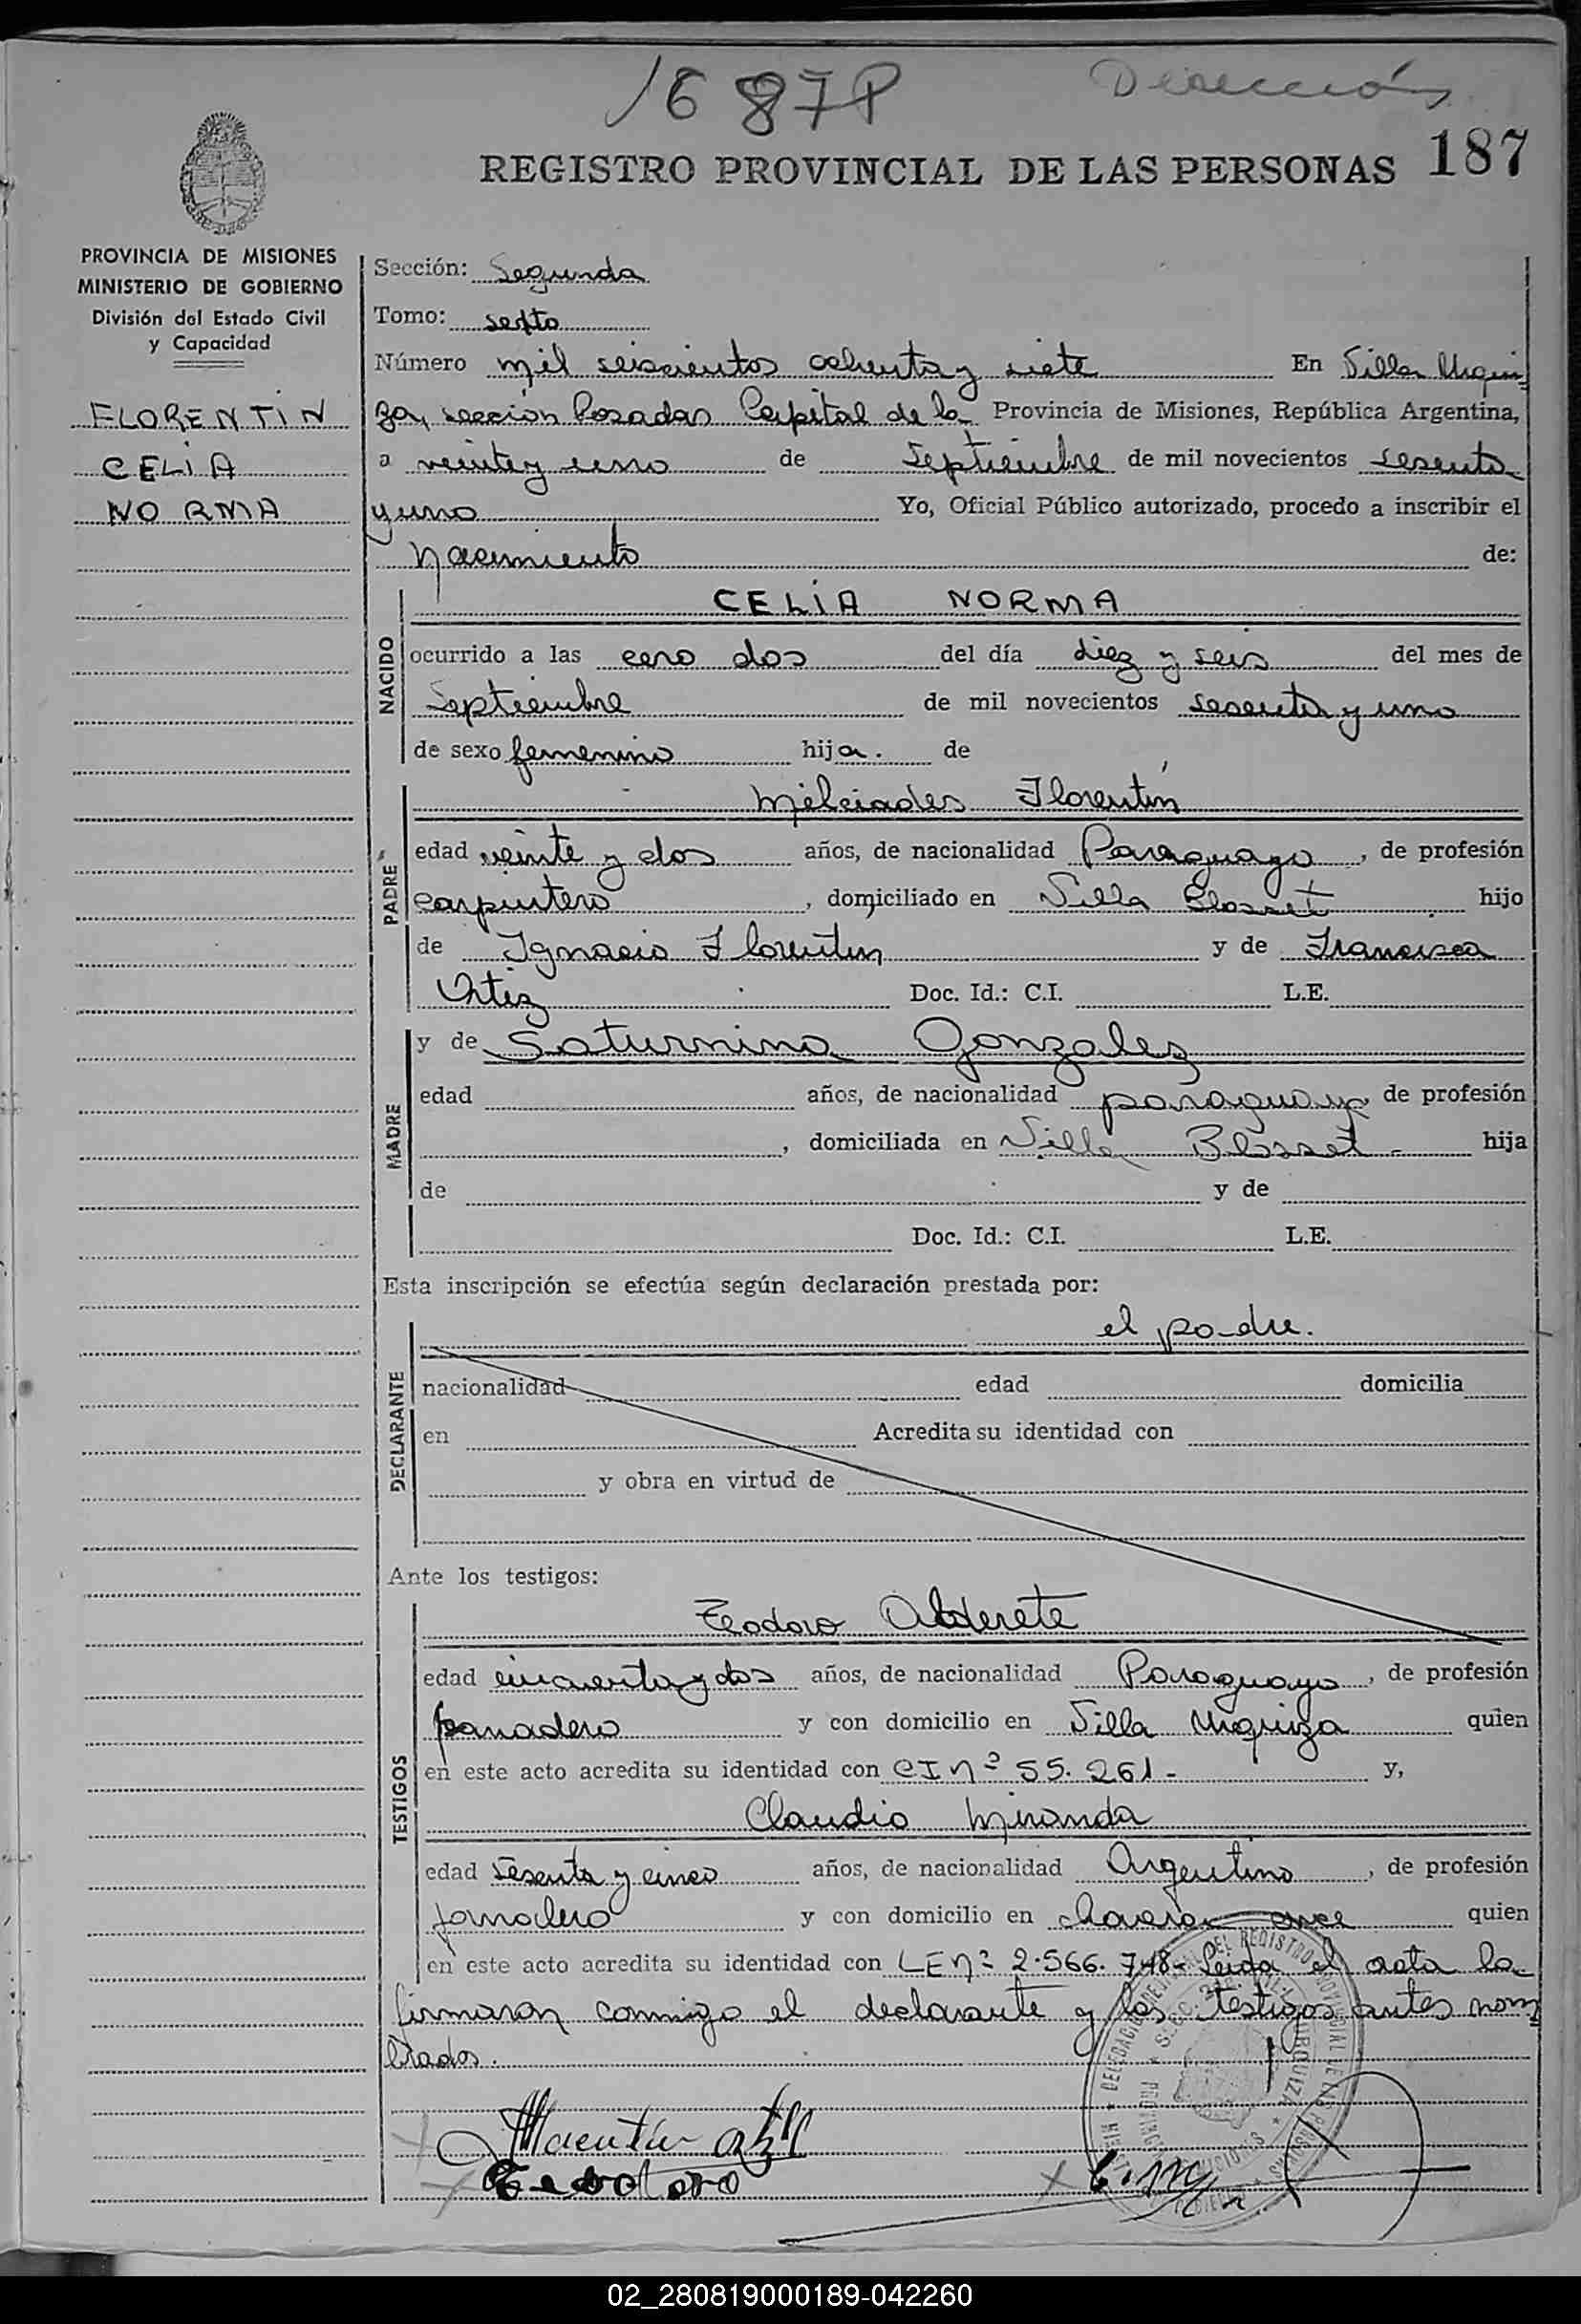 1687P
Dirección
REGISTRO PROVINCIAL DE LAS PERSONAS 187
PROVINCIA DE MISIONES
MINISTERIO DE GOBIERNO
División del Estado Civil
y Capacidad
FLORENTIN
CELIA
NORMA
Sección: Segunda
Tomo: sexto
Número mil seiscientos ochenta y siete En Villa Urqui
za, sección Posadas Capital de la Provincia de Misiones, República Argentina,
a veinte y uno de Septiembre de mil novecientos sesenta
y uno Yo, Oficial Público autorizado, procedo a inscribir el
Nacimiento de:
NACIDO
CELIA NORMA
ocurrido a las cero dos del día diez y seis del mes de
Septiembre de mil novecientos sesenta y uno
de sexo femenino hija. de
PADRE
Melciades Florentín
edad veinte y dos años, de nacionalidad Paraguaya, de profesión
carpintero, domiciliado en Villa Blosset hijo
de Ignacio Florentin y de Francisca
Ortiz Doc. Id.: C.I. L.E.
MADRE
y de Saturnina Gonzalez
edad años, de nacionalidad paraguaya de profesión
, domiciliada en Villa Blosset - hija
de y de
Doc. Id.: C.I. L.E.
Esta inscripción se efectúa según declaración prestada por:
DECLARANTE
el padre.
nacionalidad edad domicilia
en Acredita su identidad con
y obra en virtud de
Ante los testigos:
TESTIGOS
Teodoro Alderete
edad cincuenta y dos años, de nacionalidad Paraguaya, de profesión
panadero y con domicilio en Villa Urquiza quien
en este acto acredita su identidad con CI nº 55.261- y,
Claudio Miranda
edad Sesenta y cinco años, de nacionalidad Argentino, de profesión
jornalero y con domicilio en quien
en este acto acredita su identidad con LE nº 2.566.748- Leida el acta la
firmaron conmigo el declarante y los testigos antes nom
brados.
Teodoro
C. M
02_280819000189-042260